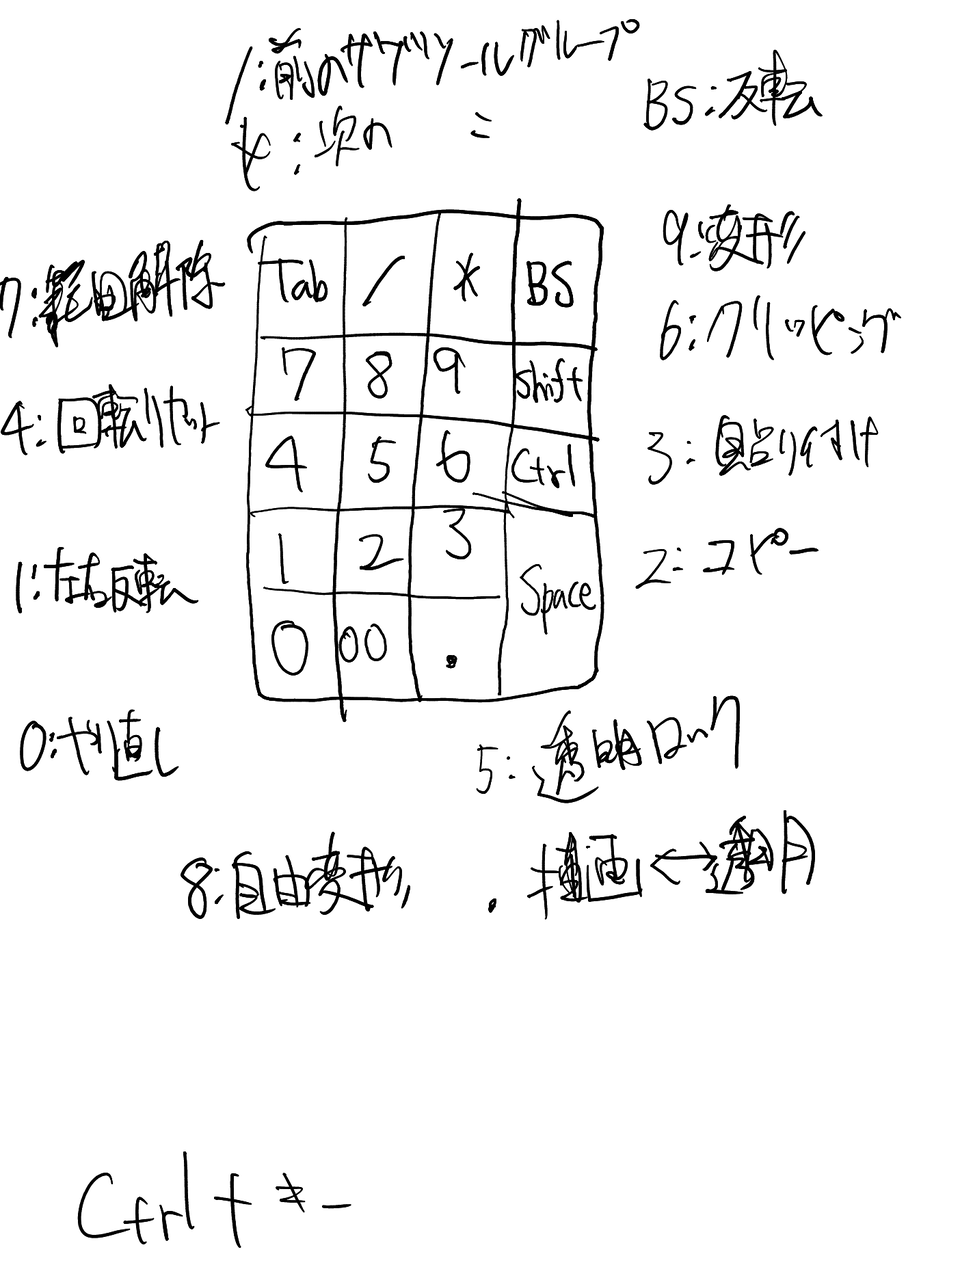 /:前のサブツールグループ
*:次の 〃
BS:反転
9:変形
7:範囲解除
6:クリッピング
4:回転リセット
3:貼り付け
1:左右反転
2:コピー
Tab / * BS
7 8 9 Shift
4 5 6 Ctrl
1 2 3 Space
0 00 .
0:やり直し
5:透明ロック
8:自由変形
. 描画↔透明
Ctrl+キー